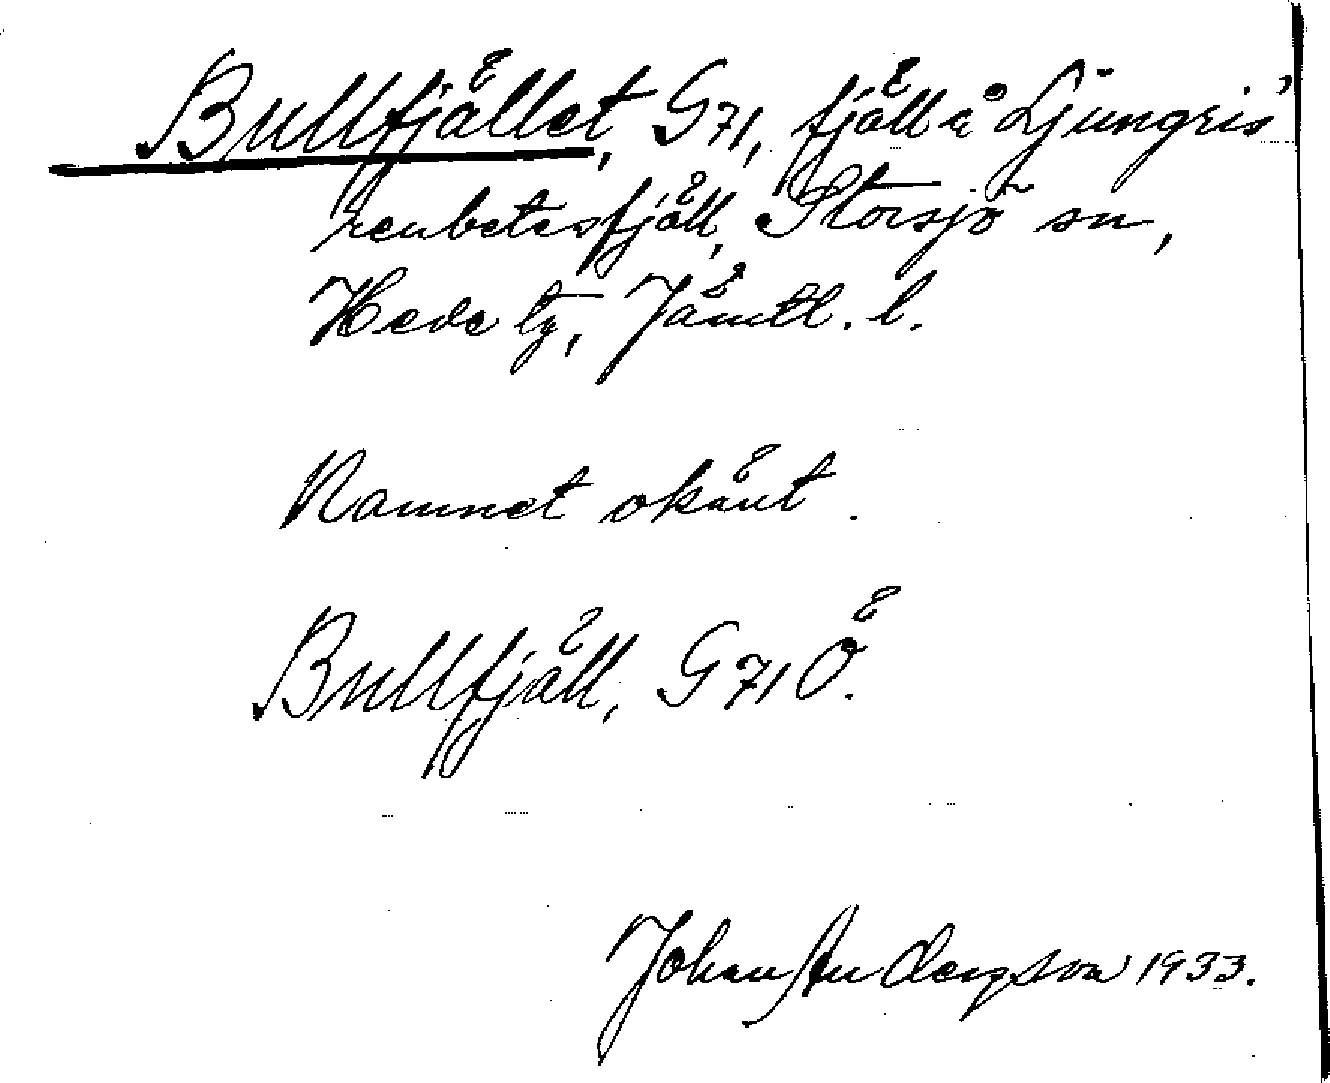 Bullfjället, G71, fjäll å Ljungris
renbetesfjäll, Storsjö sn,
Hede tg, Jämtl. l.
Namnet okänt.
Bullfjäll, G71Ö.
Johan Andersson 1933.